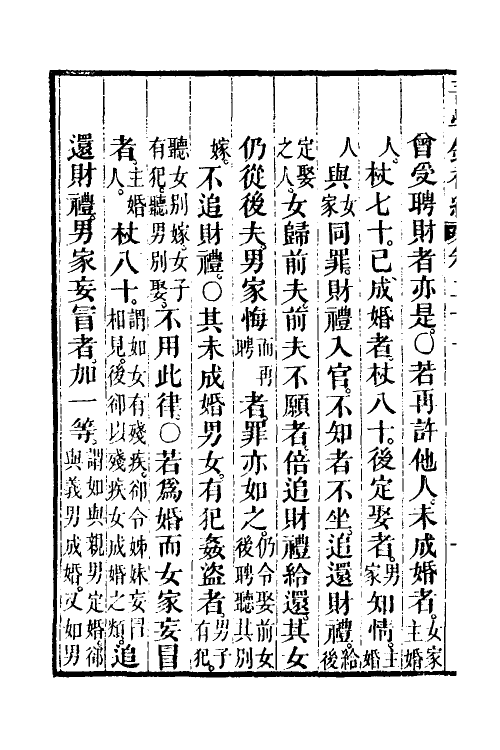 曾受聘財者亦是。〇若再許他人。未成婚者。女家主婚
人。杖七十。已成婚者。杖八十。後定娶者。男家知情。主婚
人與女家同罪。財禮入官。不知者不坐。追還財禮。給後
定娶之人。女歸前夫。前夫不願者。倍追財禮給還。其女
仍從後夫。男家悔而再聘者。罪亦如之。仍令娶前女後聘聽其別
嫁。不追財禮。〇其未成婚男女。有犯姦盜者。男子有犯。
聽女別嫁。女子有犯。聽男別娶。不用此律。〇若爲婚而女家妄冒
者。主婚人。杖八十。謂如女有殘疾。卻令姊妹妄冒相見。後卻以殘疾女成婚之類。追
還財禮。男家妄冒者。加一等。謂如與親男定婚。卻與義男成婚。又如男